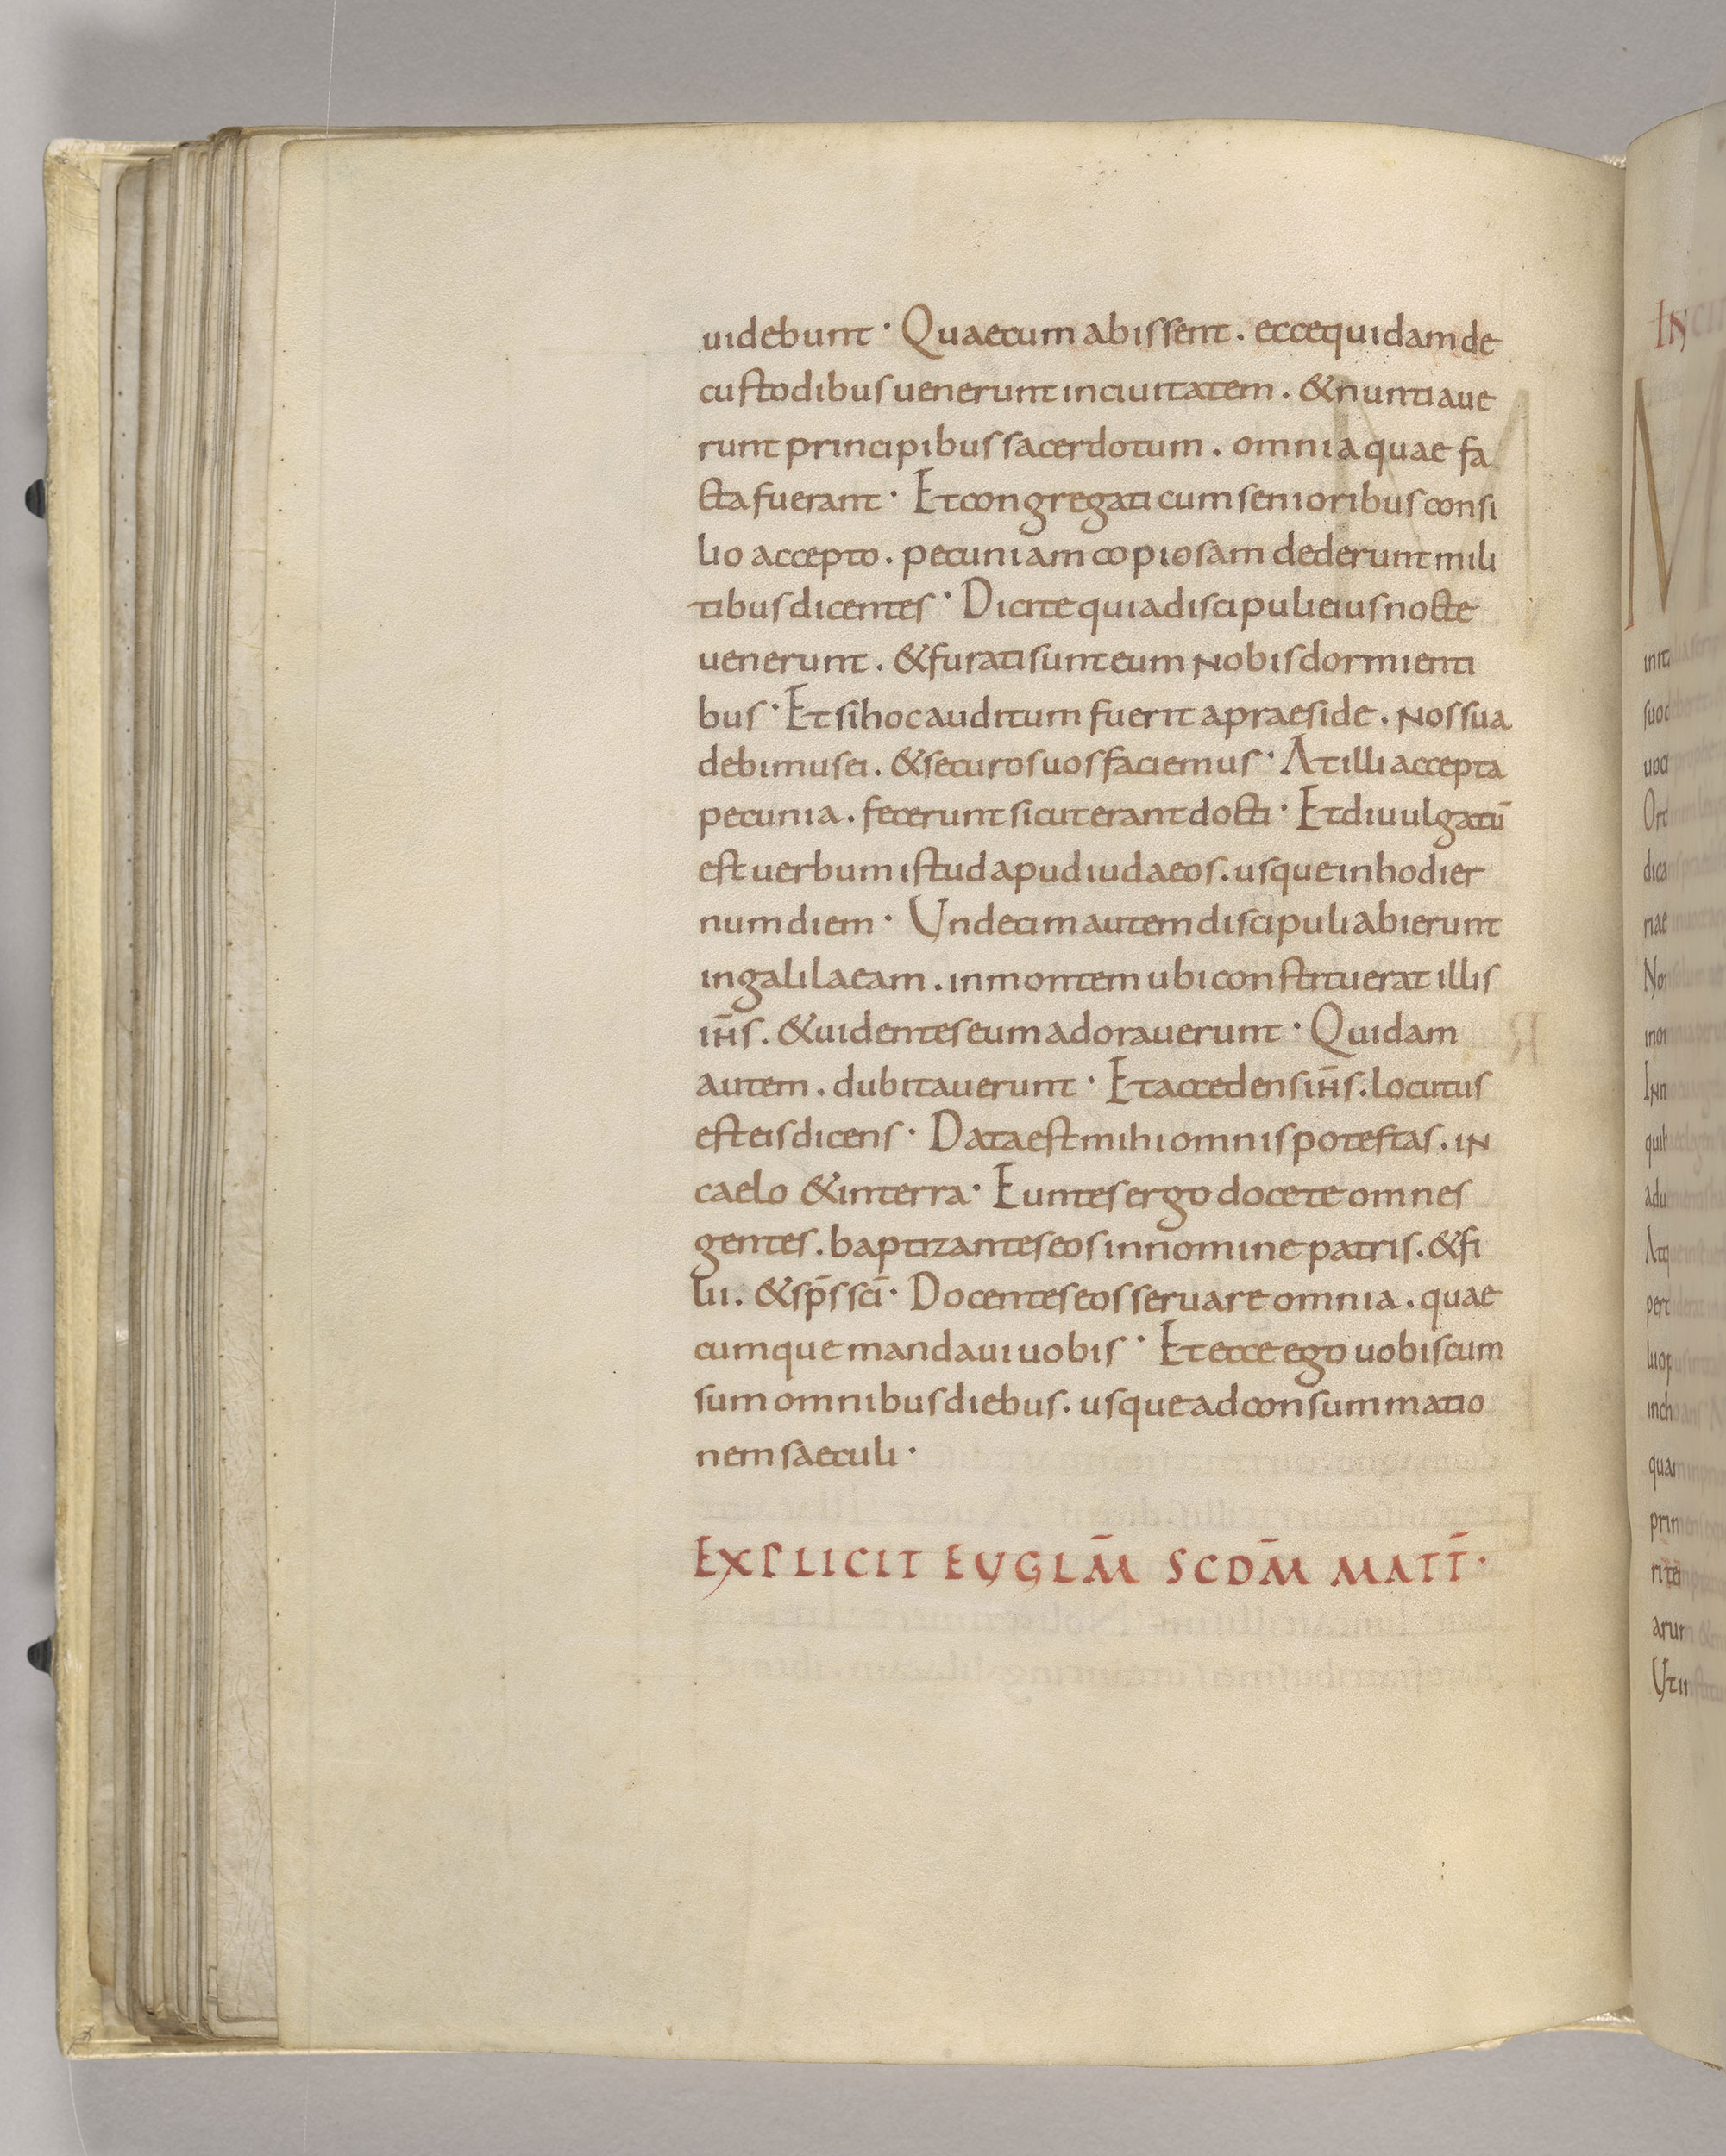 uidebunt · Quae cum abissent . ecce quidam de
custodibus uenerunt in ciuitatem . & nuntiaue
runt principibus sacerdotum . omnia quae fa
cta fuerant · Et congregati cum senioribus consi
lio accepto . pecuniam copiosam dederunt mili
tibus dicentes · Dicite quia discipuli eius nocte
uenerunt . & furati sunt eum nobis dormienti
bus · Et si hoc auditum fuerit a praeside . nos sua
debimus ei . & securos uos faciemus · At illi accepta
pecunia . fecerunt sicut erant docti · Et diuulgatū
est uerbum istud apud iudaeos . usque in hodier
num diem · Undecim autem discipuli abierunt
in galilaeam . in montem ubi constituerat illis
ih̄s . & uidentes eum adorauerunt · Quidam
autem . dubitauerunt · Et accedens ih̄s . locutus
est eis dicens · Data est mihi omnis potestas . in
caelo & in terra · Euntes ergo docete omnes
gentes . baptizantes eos in nomine patris . & fi
lii . & sp̄s sc̄i · Docentes eos seruare omnia . quae
cumque mandaui uobis · Et ecce ego uobiscum
sum omnibus diebus . usque ad consummatio
nem saeculi ·
EXPLICIT EUGLM̄ SCDM̄ MATT̄ ·